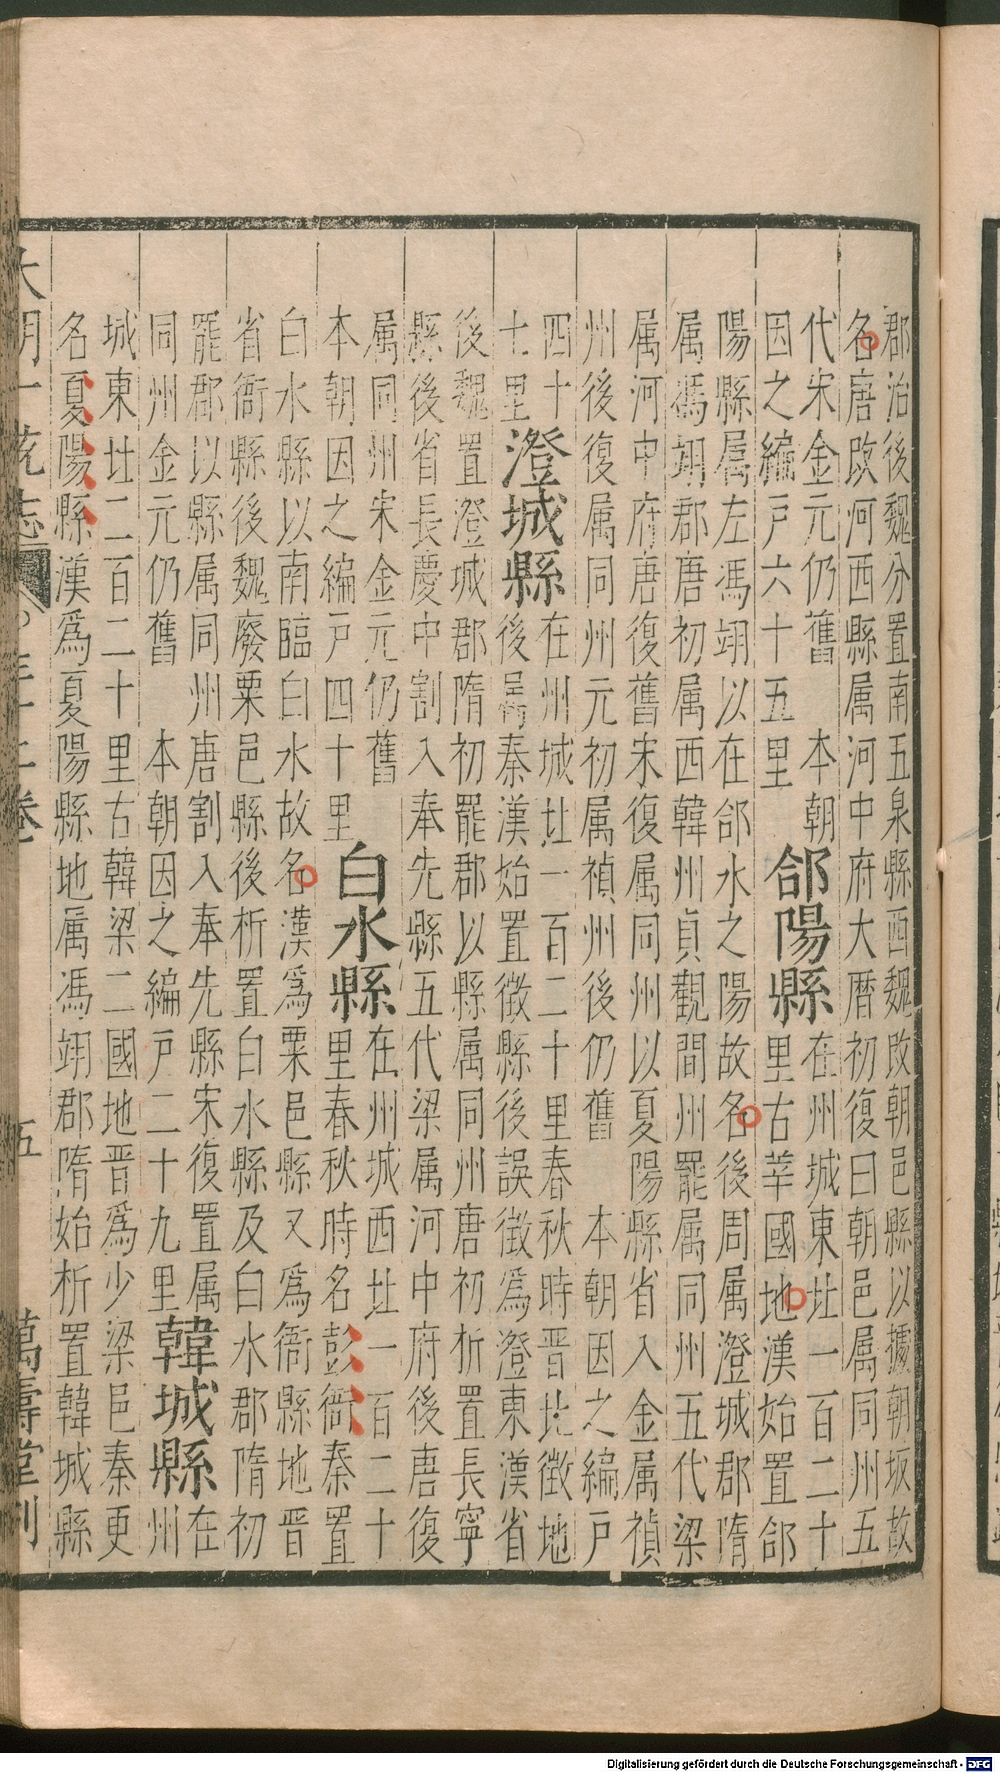 郡治後魏分置南五泉縣西魏改朝邑縣以據朝坂故
名唐改河西縣属河中府大曆初復曰朝邑属同州五
代宋金元仍舊　本朝
因之編戸六十五里
郃陽縣
在州城東北一百二十
里古莘國地漢始置郃
陽縣属左馮翊以在郃水之陽故名後周属澄城郡隋
属馮翊郡唐初属西韓州貞觀間州罷属同州五代梁
属河中府唐復舊宋復属同州以夏陽縣省入金属禎
州後復属同州元初属禎州後仍舊　本朝因之編戸
四十
七里
澄城縣
在州城北一百二十里春秋時晋北徵地
後屬秦漢始置徵縣後誤徵為澄東漢省
後魏置澄城郡隋初罷郡以縣属同州唐初析置長寧
縣後省長慶中割入奉先縣五代梁属河中府後唐復
属同州宋金元仍舊
本朝因之編戸四十里
白水縣
在州城西北一百二十
里春秋時名彭衙秦置
白水縣以南臨白水故名漢為粟邑縣又為衙縣地晋
省衙縣後魏廢粟邑縣後析置白水縣及白水郡隋初
罷郡以縣属同州唐割入奉先縣宋復置属
同州金元仍舊　本朝因之編戸二十九里
韓城縣
在
州
城東北二百二十里古韓梁二國地晋為少梁邑秦更
名夏陽縣漢為夏陽縣地属馮翊郡隋始析置韓城縣
大明一統志
卷
五
萬壽堂刊
Digitalisierung gefördert durch die Deutsche Forschungsgemeinschaft - DFG